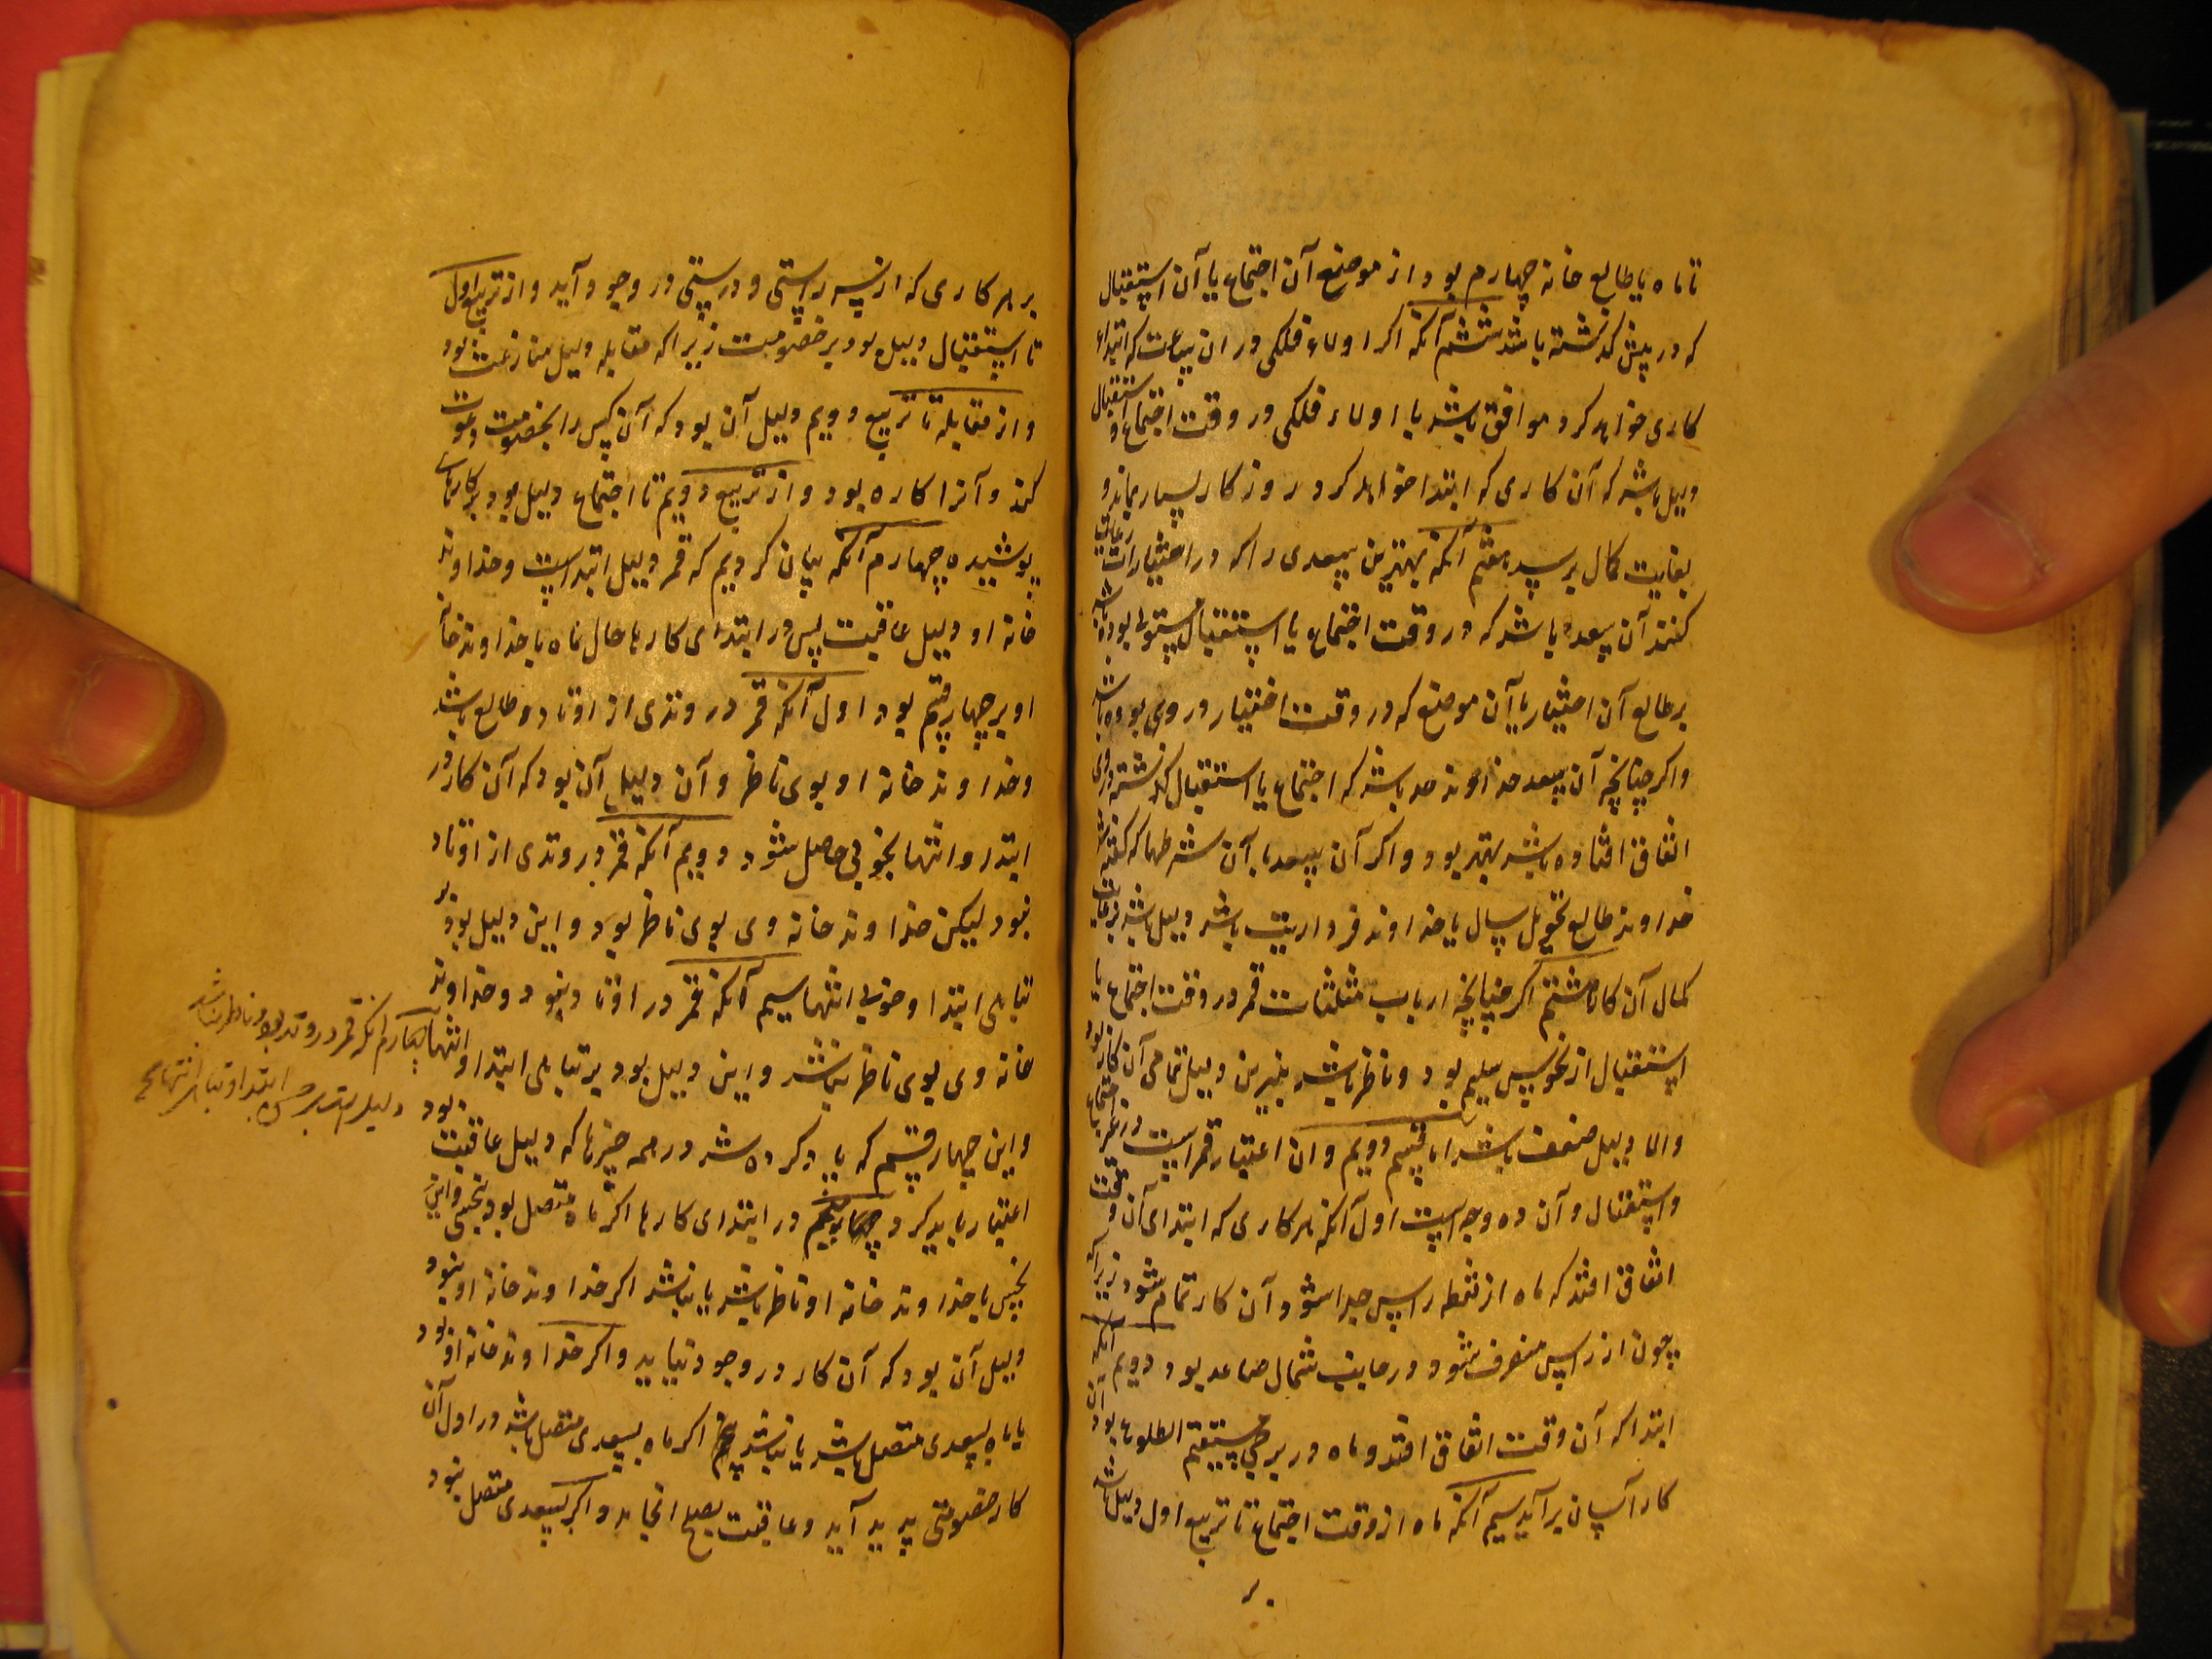 تا ماه یا طالع خانه چهارم بود از موضع آن اجتماع یا آن استقبال
که در پیش گذشته باشد ششم آنکه اگر اولاد فلکی در ان ساعت که ابتداء
کاری خواهد کرد موافق باشد با اولاد فلکی در وقت اجتماع و استقبال
دلیل باشد که آن کاری که ابتدا خواهد کرد روزکار بسیار بماند و
بغایت کمال برسد هفتم آنکه بهترین سعدی را که در اختیارات رعایت
کنند آن سعد باشد که در وقت اجتماع یا استقبال مستولی بوده باشد
بر طالع آن اختیار یا آن موضع که در وقت اختیار در وی بوده باشد
و اکر چنانچه آن سعد خداوند حد باشد که اجتماع یا استقبال گذشته در وی
اتفاق افتاده باشد بهتر بود و اکر آن سعد با آن شرطها که کفته شد
خداوند طالع تحویل سال یا خداوند فرداریت باشد دلیل باشد بر غایت
کمال آن کار هشتم اکر چنانچه ارباب مثلثات قمر در وقت اجتماع یا
استقبال از نحوس سلیم بود و ناظر باشد بنیرین دلیل تمامی آن کار بود
والا دلیل ضعف باشد اما قسم دویم و ان اعتبار قمر است در غیر اجتماع
و استقبال و آن ده وجه است اول آنکه هر کاری که ابتدای آن وقت
اتفاق افتد که ماه از نقطه راس جدا شود آن کار تمام شود زیرا که
چون از راس منصرف شود در جانب شمال صاعد بود دویم آنکه
ابتدا که آن وقت اتفاق افتد و ماه در برجی مستقیم الطلوع بود آن
کار آسان برآید سیم آنکه ماه از وقت اجتماع تا تربیع اول دلیل باشد
بر
بر هر کاری که از سر راستی و درستی در وجود آید و از تربیع اول
تا استقبال دلیل بود بر خصومت زیرا که مقابله دلیل منازعت بود
و از مقابله تا تربیع دویم دلیل آن بود که آن کس را بخصومت دعوت
کند و آنرا کاره بود و از تربیع دویم تا اجتماع دلیل بود بر کارهای
پوشیده چهارم آنکه بیان کردیم که قمر دلیل ابتداست و خداوند
خانه او دلیل عاقبت پس در ابتدای کارها حال ماه با خداوند خانه
او بر چهار قسم بود اول آنکه قمر در وتدی از اوتاد طالع باشد
و خداوند خانه او بوی ناظر و آن دلیل آن بود که آن کار در
ابتدا و انتها بخوبی حاصل شود دویم آنکه قمر در وتدی از اوتاد
نبود لیکن خداوند خانه وی بوی ناظر بود و این دلیل بود بر
تباهی ابتدا و خوبی انتها سیم آنکه قمر در اوتاد نبود و خداوند
خانه وی بوی ناظر نباشد و این دلیل بود بر تباهی ابتدا و انتها
چهارم آنکه قمر در وتد بود و ناظر نباشد
دلیل است بر ابتدا و تباهی انتها
و این چهار قسم که یاد کرده شد در همه چیزها که دلیل عاقبت بود
اعتبار باید کرد در ابتدای کارها اکر ماه متصل بود بنحسی و این
نحس یا خداوند خانه او ناظر باشد یا نباشد اکر خداوند خانه او نبود
دلیل آن بود که آن کار در وجود نیاید و اکر خداوند خانه او بود
یا ماه بسعدی متصل باشد یا نباشد پنجم اکر ماه بسعدی متصل باشد در اول آن
کار خصومتی پدید آید و عاقبت بصلح انجامد و اکر بسعدی متصل نبود